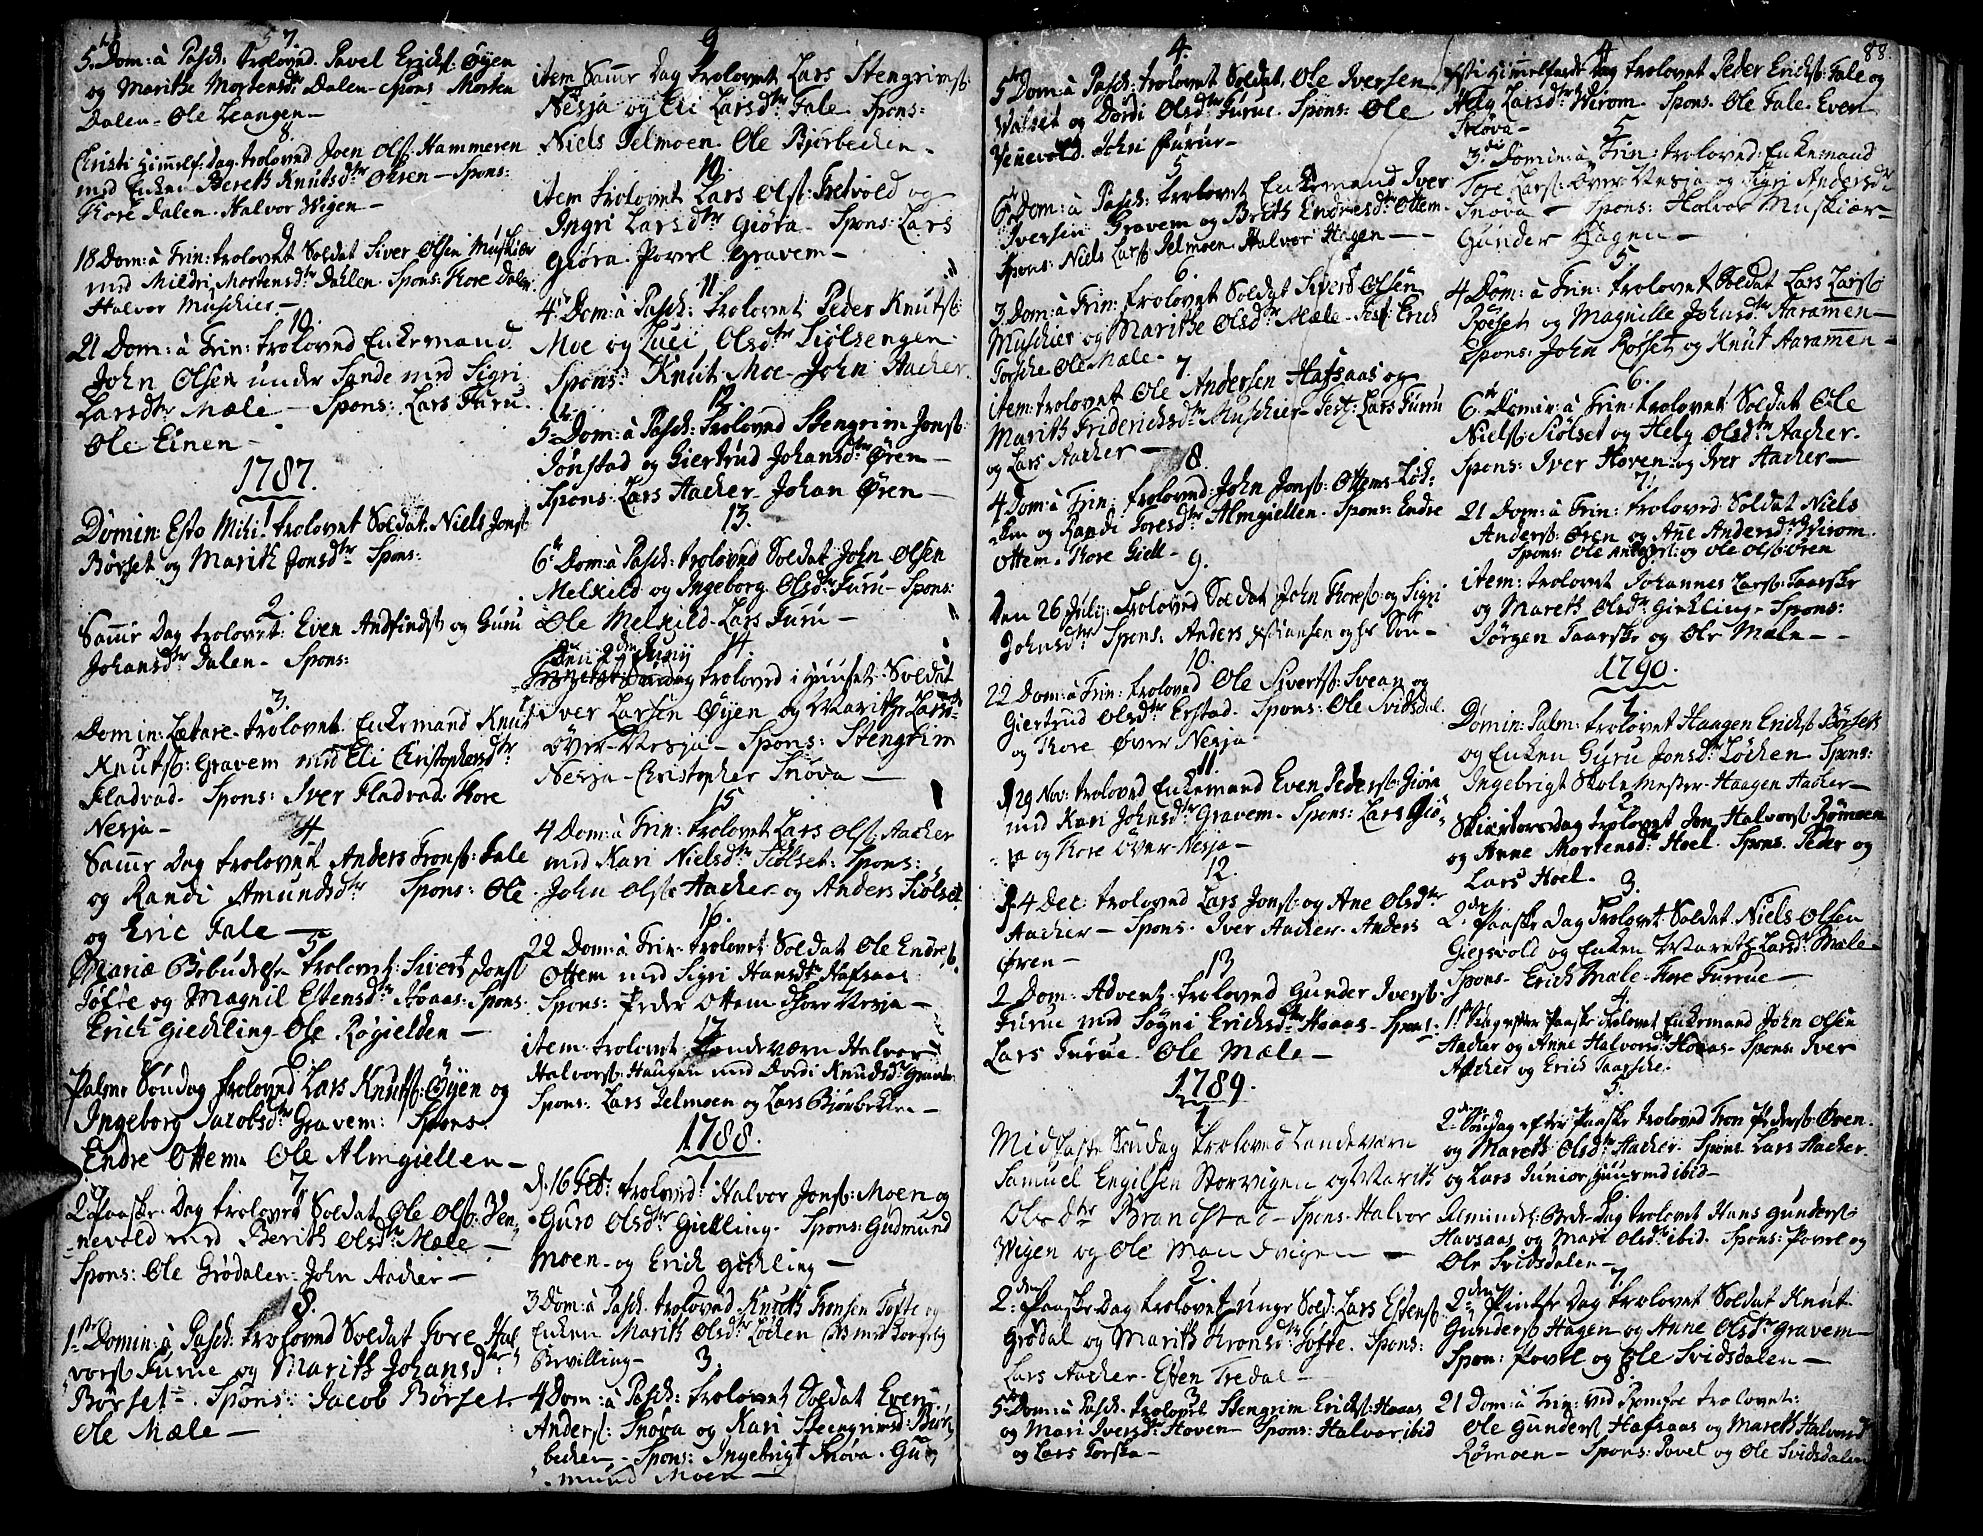 7.
5. Dom: à Pasch: trolovd. Pavel Erichs: Øyen
og Marithe Mortensdtr Dalen - Spons Morten
Dalen - Ole Leangen -
8.
Christi Himmelf: Dag. trolovd Joen Ols: Hammeren
med Enken Bereth Knutsdtr Øhren - Spons:
Thore Dalen. Halvor Wigen -
9
18 Dom: à Trin: trolovet Soldat Siver Olsen Muskier
med Mildri Mortensdtr Dahlen. Spons: Thore Dalen
Halvor Muschier. -
10
21 Dom: à Trin: trolovd Enkemand
John Olsen under Sande med Sigri
Larsdtr Mæle - Spons: Lars Furu.
Ole Einen -
1787.
1
Domin: Esto Mihi trolovet Soldat. Niels Jons:
Børset og Marith Jonsdtr Spons:
2.
Samme Dag trolovet: Even Andfinds: og Guru
Johansdtr Dalen - Spons:
3.
Domin: Lætare - trolovet Enkemand Knut
Knuts: Gravem med Eli Christophersdtr
Fladvad. Spons: Iver Fladvad. Thore
Nesja -
4
Samme Dag trolovet Anders Trons: Fale
og Randi Amundsdtr Spons: Ole
og Eric Fale -
5
Mariæ Bebudelse trolovet: Sivert Jons:
Tofte og Magnil Estensdtr Hoaas: Spons
Erich Gieckling - Ole Røgielden -
6
Palme Søndag trolovd Lars Knuts: Øyen og
Ingeborg Jacobsdtr Gravem: Spons.
Endre Ottem. Ole Almgiellen -
7
2. Paaske Dag trolovd Soldat Ole Ols: Ven-
nevold med Berith Olsdtr Mæle -
Spons: Ole Grødalen - John Aacher -
8.
1te Domin: à Pasch: trolovd Soldat Tore Hal
vors: Furue og Marith Johansdtr
Børset - Spons: Jacob Børset.
Ole Mæle -
9
item Samme Dag trolovet Lars Stengrims:
Nesja og Eli Larsdtr Fale. Spons:
Niels Jelmoen. Ole Bjørbechen -
10.
item trolovet Lars Ols: Tretvold og
Ingri Larsdtr Giøra - Spons: Lars
Giøra. Povel Gravem -
11.
4. Dom: à Pasch: trolovet Peder Knuts:
Moe og Luci Olsdtr Siølsengen
Spons: Knut Moe - John Aacher.
12.
5te Dom: à Pasch: trolovd Stengrim Jons:
Jønstad og Giertrud Johansdtr Øren -
Spons: Lars Aacher. Johan Øren -
13.
6te Dom: à Pasch: trolovd Soldat John Olsen
Melkild og Ingeborg Olsdtr Furu - Spons:
Ole Melkild - Lars Furu -
14.
Den 2den Junij
trolovd i Huuset Soldat
Iver Larsen Øyen og Marithe Larsdtr
Over-Nesja - Spons: Stengrim
Nesja - Christopher Snøva -
15
4 Dom: à Trin: trolovet Lars Ols: Aacher
med Kari Nielsdtr Siølset: Spons:
John Ols: Aacher og Anders Siølset.
16.
22 Dom: à Trin: trolovet Soldat Ole Endres:
Ottem med Sigri Hansdtr Hafsaas
Spons: Peder Ottem Thore Nesja -
17
item: trolovet Landeværn Halvor
Halvors: Haugen med Dordi Knudsdtr Gravem
Spons: Lars Jelmoen og Lars Biørbekken -
1788.
1
d. 16 Feb: trolovd Halvor Jons: Moen og
Guro Olsdtr Gickling. Spons: Gudmund
Moen - og Erich Gickling -
3 Dom: à Pasch: trolovd Knuth Tronsen Tofte og
Enken Marith Olsdtr Løcken
Bevilling -
3.
4 Dom: à Pasch: trolovet Soldat Even
Anders: Snøva og Kari Stengrimsd: Biør
bechen - Spons: Ingebrigt Snøva. Gud
mund Moen -
4.
5te Dom: à Pasch: trolovet Soldat. Ole Iversen
Walset og Dordi Olsdtr Furue. Spons: Ole
Vennevold. John Furue -
5
6te Dom: à Pasch: trolovet Enkemand Iver
Iversen Gravem og Brith Endresdtr Ottem.
Spons: Niels Lars: Jelmoen. Halvor Hagen -
6.
3. Dom: à Trin: trolovet Soldat Siverd Olsen
Muschier og Marithe Olsdtr Mæle - Test: Erich
Torsche Ole Mæle -
7
item: trolovet Ole Andersen Hafsaas og
Marith Friderichsdtr Muschier - Test: Lars Furru
og Lars Aacher -
8.
4 Dom: à Trin: trolovd John Jons: Ottems-Lød-
en og Randi Toresdtr Almgiellen. Spons: Endre
Ottem. Thore Giell -
9.
Den 26 Julij: trolovd Soldat John Thores: og Sigri
Johnsdtr Spons: Anders Christiansen og hs Søn -
10.
22 Dom: à Trin: trolovd Ole Siverts: Svean og
Giertrud Olsdtr Erstad. Spons: Ole Svidsdal
og Thore Over Nesja -
11
d. 29 Nov: trolovd Enkemand Even Peders: Giøra
med Kari Johnsdtr Gravem - Spons: Lars Giø-
ra og Thore Over-Nesja -
12.
d. 4 Dec: trolovd Lars Jons: og Ane Olsdtr
Aacher - Spons. Iver Aacher. Anders
Øren -
13
2 Dom: Advent: trolovd Gunder Ivers:
Furue med Sygni Ericksdtr Hoaas - Spons:
Lars Furue. Ole Mæle -
1789.
1
Midfaste Søndag trolovd Landeværn
Samuel Engilsen Storvigen og Marith
Olsdtr Brandstad - Spons. Halvor
Wigen og Ole Wigen -
2.
2den Paaske Dag trolovet unge Sold: Lars Estens:
Grødal og Marith Tronsdtr Tofte. Spons:
Lars Aacher - Esten Tredal -
3
5te Dom: à Pasch: trolovet Stengrim Erichs: Hoaas
og Mari Iversd: Hoven - Spons: Halvor ibid
og Lars Torske -
88.
4
Christi Himmelfarts Dag trolovet Peder Erichs: Fale og
Helg Larsdtr Wirom. Spons. Ole Fale. Even
Snøva -
5
3die Domin: à Trin: trolovd: Enkemand
Tore Lars: Over-Nesja og Sigri Andersdtr
Snøva - Spons: Halvor Muskiær -
Gunder Hagen -
5
4. Dom: à Trin: trolovet Soldat Lars Lars:
Røeset og Magnille Johnsdtr Aaramen -
Spons: John Rosset og Knut Aaramen -
6.
6te Domin: à Trin: trolovet Soldat Ole
Niels: Siølset og Helg Olsdtr Aacher.
Spons: Iver Hoven og Iver Aacher -
7.
21 Dom: à Trin: trolovd Soldat Niels
Anders: Øren og Ane Andersdtr Wirom.
Spons: Ole Anders: og Ole Ols: Øren
item: trolovet Johannes Lars: Taarske
og Mareth Olsdtr Gickling - Spons:
Jørgen Taarske og Ole Mæle -
1790.
1
Domin: Palm: trolovet Haagen Erichs: Børset
og Enken Guru Jonsdtr Løcken. Spons:
Ingebrigt Skole Mester - Haagen Aacher -
2
Skiærtorsdag trolovet Jon Halvors: Rømoen
og Anne Mortensdtr Hoel. Spons. Peder og
Lars Hoel.
3.
2den Paaske Dag trolovt Soldat. Niels Olsen
Giersvold og Enken Mareth Larsdtr Mæle -
Spons - Erich Mæle - Tore Furrue -
4.
1ste Søn: efter Paaske trolovet Enkemand John Olsen
Aacher og Anne Halvorsd: Hoaas - Spons: Iver
Aacher og Erich Taarsche.
5.
2den Søndag efter Paaske trolovd Tron Peders: Øven.
og Mareth Olsdtr Aacher. Spons. Lars Aacher
og Lars Junior Huusmd ibid -
Almindel: Bede-Dag trolovet Hans Gunders:
Havsaas og Mari Olsd: ibid. Spons: Povel og
Ole Svidsdalen -
7
2den Pintse Dag trolovet Soldat Knut
Gunders: Hagen og Anne Olsdtr Gravem -
Spon: Povel og Ole Svidsdalen -
21 Dom: à Trin: ved trolovet:
Ole Gunders: Hafsaas og Mareth Halvorsd
Rømoen - Spons: Povel og Ole Svidsdalen